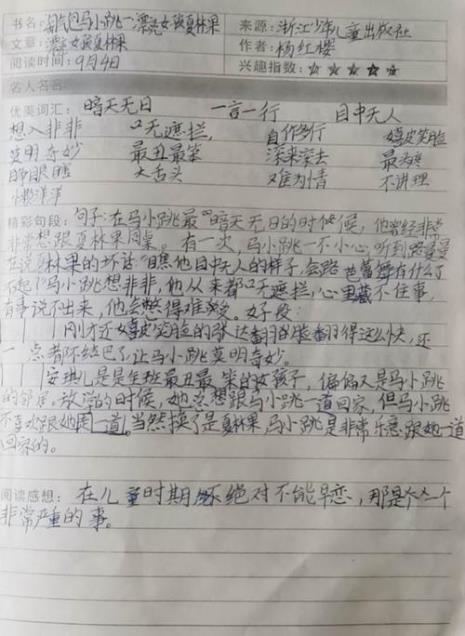 书名：淘气包马小跳—漂亮女孩夏林果
来源：浙江少年儿童出版社
文章：漂亮女孩夏林果
作者：杨红樱
阅读时间：9月4日
兴趣指数：☆☆☆☆☆
名人名言：
优美词汇：暗天无日 一言一行 目中无人
想入非非 口无遮拦， 自作多行 嬉皮笑脸
莫明奇妙 最丑最笨 深来深去 最难
大舌头 难为情 不讲理
懒洋洋
精彩句段：句子：在马小跳最"暗天无日的时候，他曾经非常
非常想跟夏林果同桌。有一次，马小跳一不小心听到路曼曼
在说夏林果的坏话"瞧他目中无人的样子，会跳芭蕾舞有什么了
不起"马小跳想非非，他从来都口无遮拦，心里藏不住事，
有事说不出来，他会憋得难受。好段：
刚才还嬉皮笑脸的张达翻脸翻得这么快，还
一点都不结巴了，让马小跳莫明奇妙。
安琪儿是全班最丑最笨的女孩子，偏偏又是马小跳
的邻居，放学的时候，她总想跟马小跳一道回家，但马小跳
不喜欢跟她同一道。当然换了是夏林果，马小跳是非常乐意跟她一道
回家的。
阅读感想：在儿童时期绝对不能早恋，那是个一个
非常严重的事。